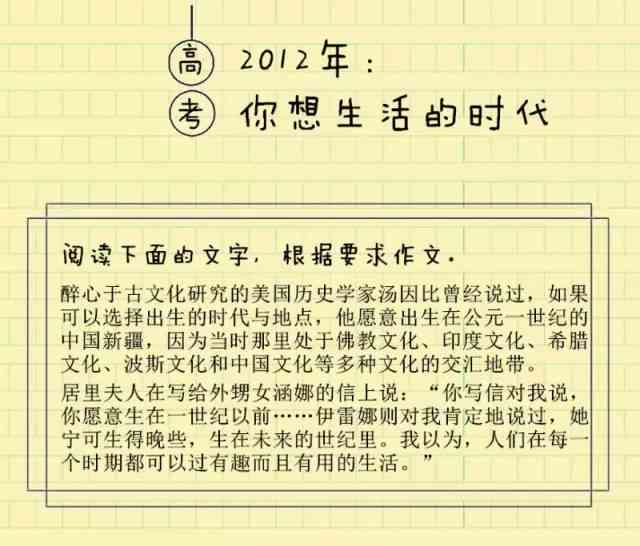 高考
2012年：
你想生活的时代
阅读下面的文字，根据要求作文。
醉心于古文化研究的美国历史学家汤因比曾经说过，如果
可以选择出生的时代与地点，他愿意出生在公元一世纪的
中国新疆，因为当时那里处于佛教文化、印度文化、希腊
文化、波斯文化和中国文化等多种文化的交汇地带。
居里夫人在写给外甥女涵娜的信上说：“你写信对我说，
你愿意生在一世纪以前……伊雷娜则对我肯定地说过，她
宁可生得晚些，生在未来的世纪里。我以为，人们在每一
个时期都可以过有趣而且有用的生活。”